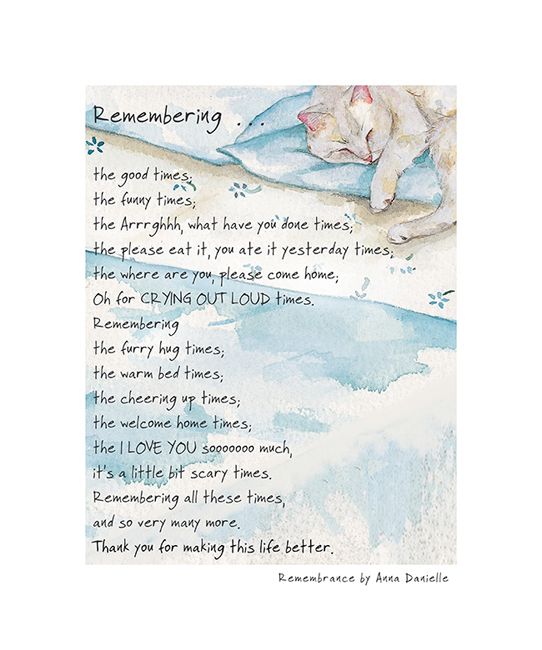 Remembering ...
the good times;
the funny times;
the Arrrghhh, what have you done times;
the please eat it, you ate it yesterday times;
the where are you, please come home;
Oh for CRYING OUT LOUD times.
Remembering
the furry hug times;
the warm bed times;
the cheering up times;
the welcome home times;
the I LOVE YOU sooooooo much,
it's a little bit scary times.
Remembering all these times,
and so very many more.
Thank you for making this life better.
Remembrance by Anna Danielle